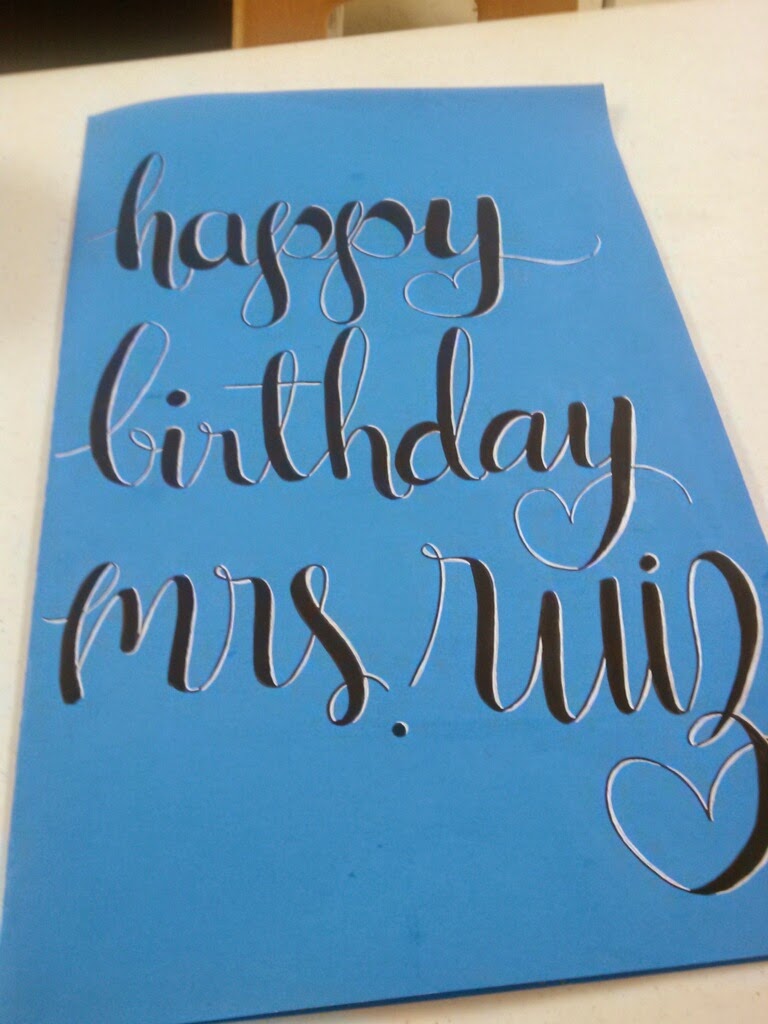 happy
birthday
mrs. ruiz